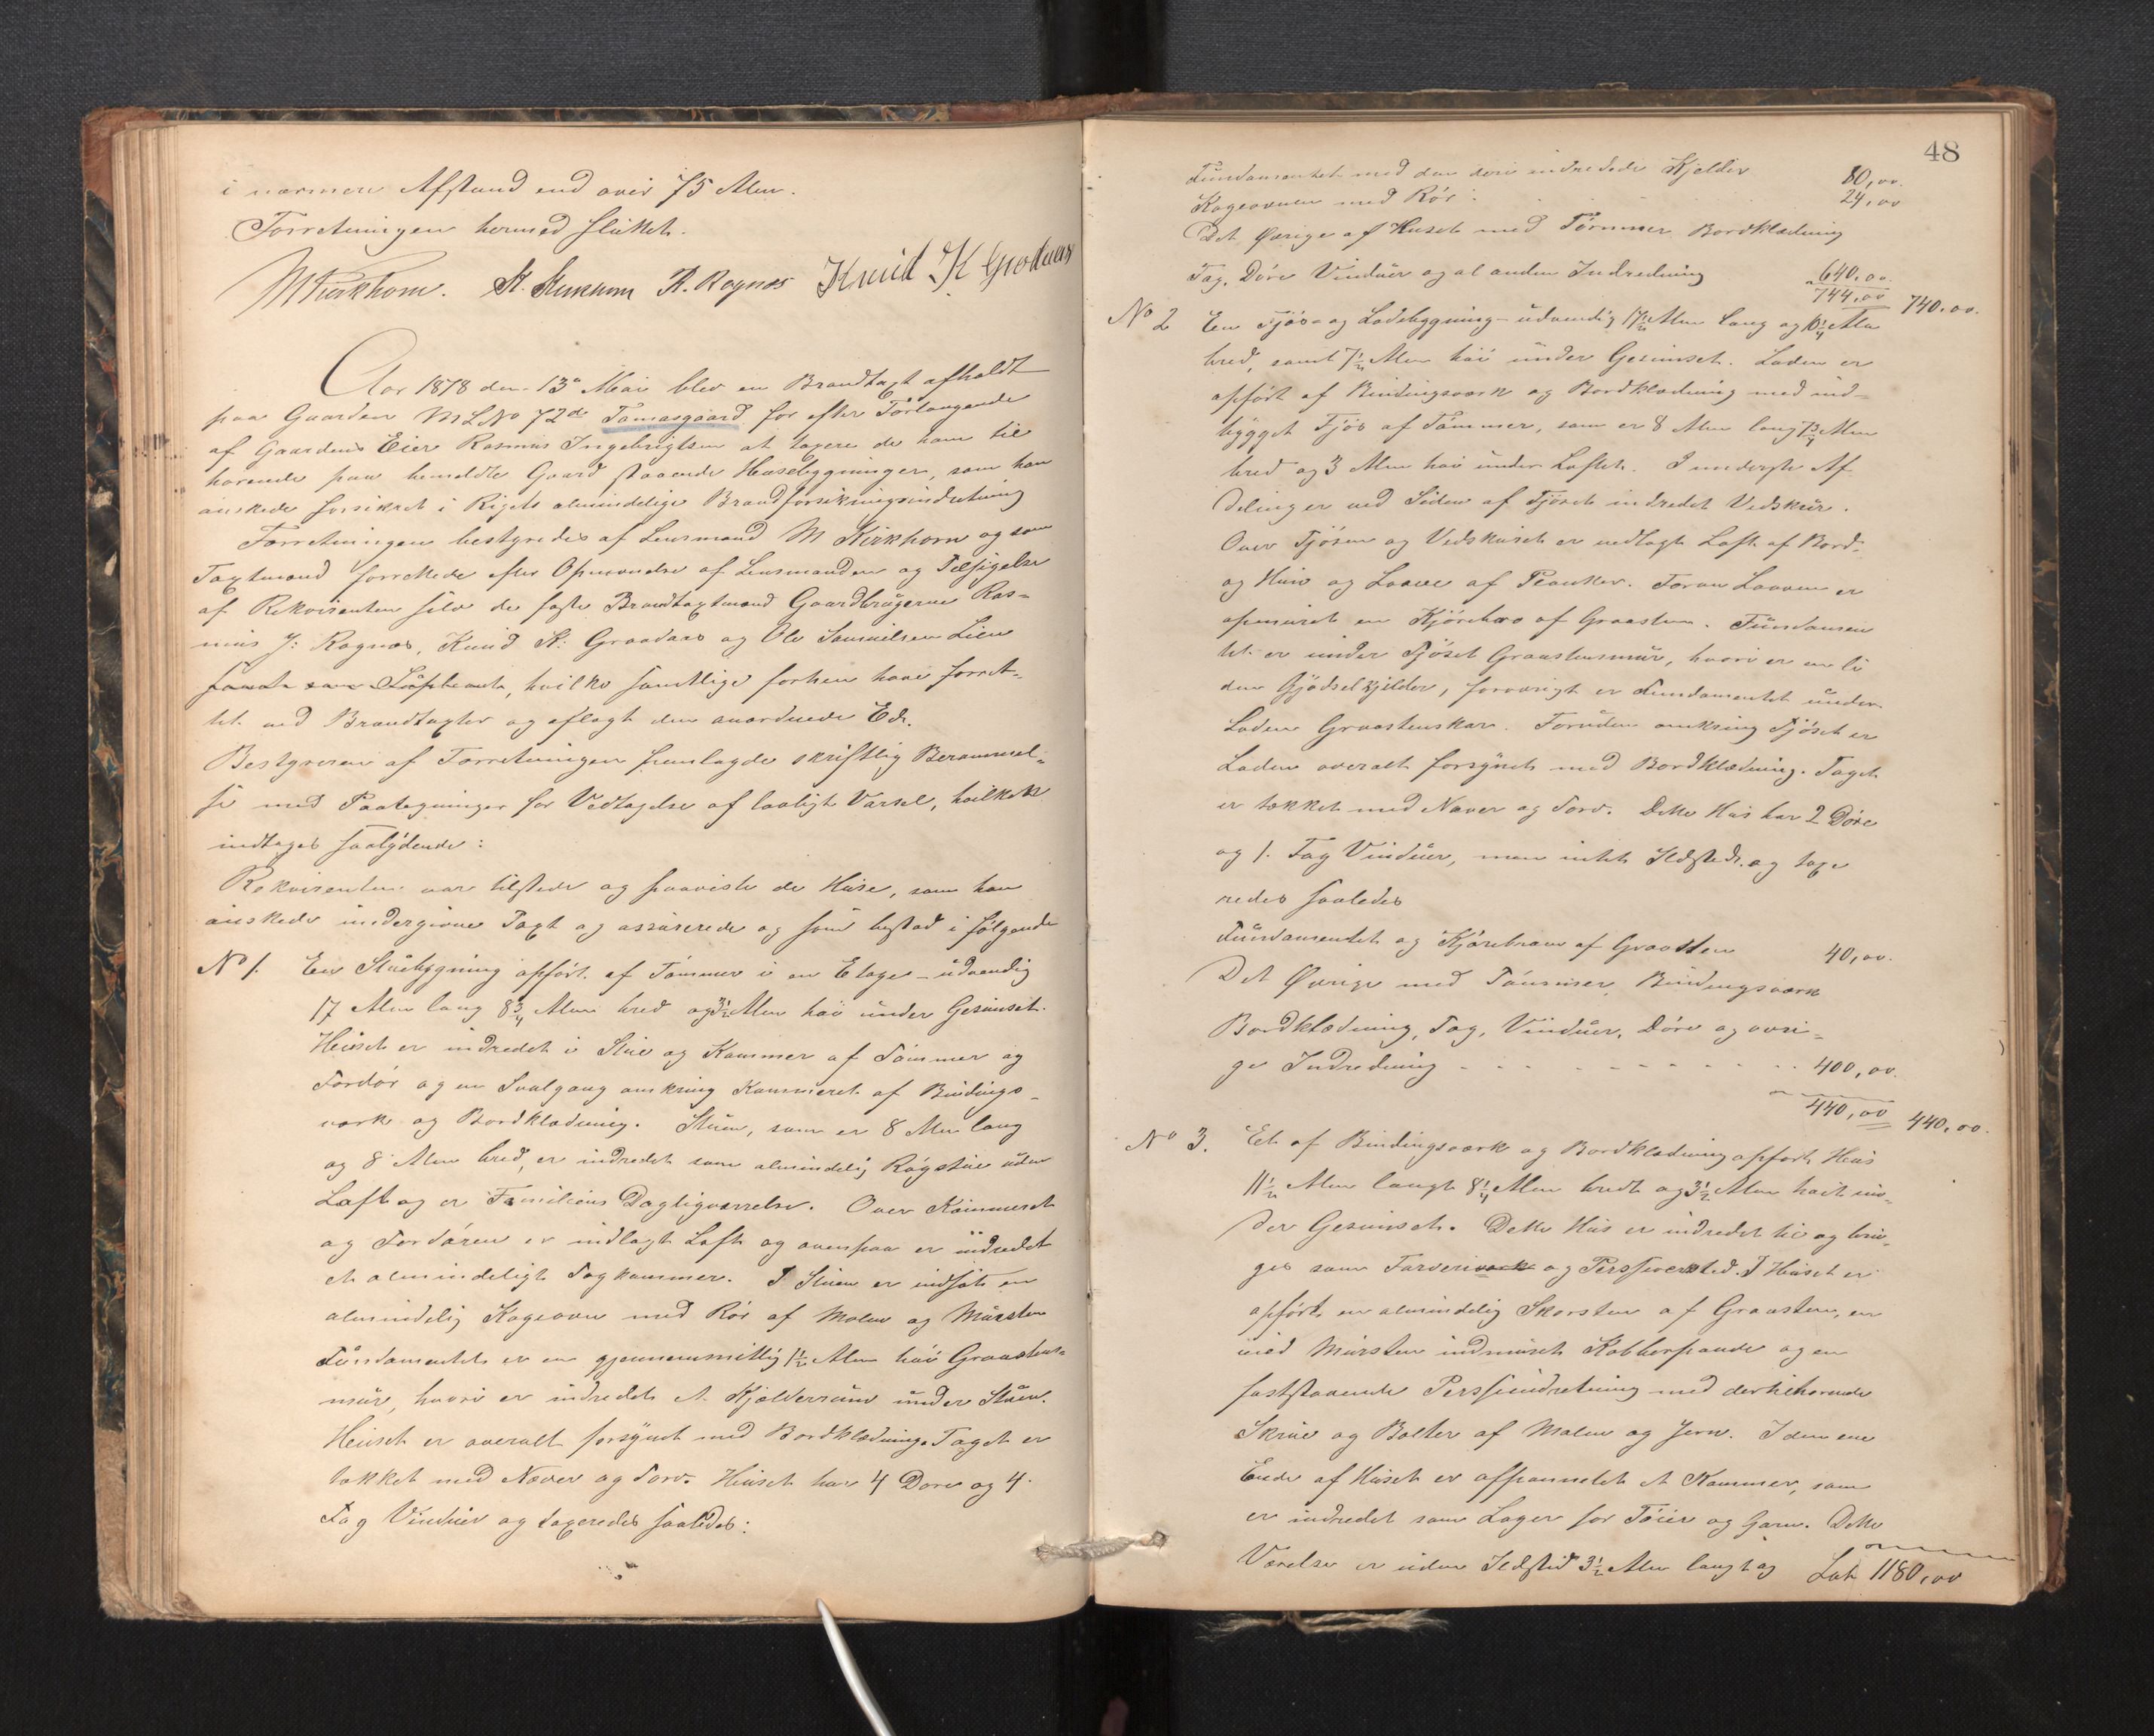 i nærmere Afstand end over 75 Alen.
Forretningen hermed sluttet.
M Kirkhorn. R. Rognæs Knud K Grodaas
Aar 1878 den 13de Mai blev en Brandtaxt afholdt
paa Gaarden M L No 72d Tomasgaard for efter Forlangende
af Gaardens Eier Rasmus Ingebrigtsen at taxere de ham til
hørende paa bemeldte Gaard staaende Husebygninger, som han
ønskede forsikret i Rigets almindelige Brandforsikringsindretning
Forretningen bestyredes af Lensmand M Kirkhorn og som
Taxtmænd forrettede efter Opnævnelse af Lensmanden og Tilsigelse
af Rekvirenten selv de faste Brandtaxtmænd Gaardbrugerne Ras-
mus J: Rognæs, Knud K: Graadaas og Ole Samuelsen Lien
hvilke samtlige forhen have forret-
tet ved Brandtaxter og aflagt den anordnede Ed.
Bestyreren af Forretningen fremlagde skriftlig Berammel-
se med Paategninger for Vedtagelse af lovligt Varsel, hvilket
indtages saalydende:
Rekvirenten var tilstede og paaviste de Huse, som han
ønskede undergivne Taxt og assurerede og som bestod i følgende
No 1. En Stuebygning opført af Tømmer i en Etage - udvendig
17 Alen lang 8 3/4 Alen bred og 3 1/2 Alen høi under Gesimset.
Huset er indredet i Stue og Kammer af Tømmer og
Fordør og en Svalgang omkring Kammeret af Bindings-
værk og Bordklædning. Stuen, som er 8 Alen lang
og 8 Alen bred, er indredet som almindelig Røgstue uden
Loft og er Familiens Dagligværelse. Over Kammeret
og Fordøren er indlagt Loft og ovenpaa er indredet
et almindeligt Tagkammer. I Stuen er indsat en
almindelig Kogeovn med Rør af Malm og Mursten
Fundamentet er en gjennemsnitlig 1 1/2 Alen høi Graastens-
mur, hvori er indredet et Kjelderrum under Stuen.
Huset er overalt forsynet med Bordklædning. Taget er
tækket med Næver og Torv. Huset har 4 Døre og 4
Fag Vinduer og taxeredes saaledes:
48
Fundamentet med den deri indredede Kjelder 80,00.
Kogeovnen med Rør: 24,00
Det Øvrige af Huset med Tømmer Bordklædning
Tag, Døre Vinduer og al anden Indredning 640,00.
744,00 740.00.
No 2 En Fjøs- og Ladebygning - udvendig 17 1/2 Alen lang og 10 1/4 Alen
bred, samt 7 1/2 Alen høi under Gesimset. Laden er
opført af Bindingsværk og Bordklædning med ind-
bygget Fjøs af Tømmer, som er 8 Alen lang 7 3/4 Alen
bred og 3 Alen høi under Loftet. I underste Af
deling er ved Siden af Fjøset indredet Vedskur.
Over Fjøset og Vedskuret er nedlagt Loft af Bord-
og Huus og Laave af Planker. Foran Laaven er
opmuret en Kjørebro af Graasten. Fundamen
tet er under Fjøset Graastensmur, hvori er en li
den Gjødselkjelder, forøvrigt er Fundamentet under
Laden Graastenskar. Foruden omkring Fjøset er
Laden overalt forsynet med Bordklædning. Taget
er tækket med Næver og Torv. Dette Hus har 2 Døre
og 1. Fag Vinduer, men intet Ildsted. og taxe
redes saaledes
Fundamentet og Kjørebroen af Graasten 40,00.
Det Øvrige med Tømmer, Bindingsværk
Bordklædning, Tag, Vinduer, Døre og øvri-
ge Indredning - - - - - - - 400,00.
440,00 440,00.
No 3. Et af Bindingsværk og Bordklædning opført Huus
11 1/2 Alen langt 8 1/4 Alen bredt og 3 1/2 Alen høit un-
der Gesimset. Dette Hus er indredet til og bru-
ges som Farveriværk og Persseværsted. I Huset er
opført en almindelig Skorsten af Graasten, en
med Mursten indmuret Kobberpande og en
faststaaende Persseindretning med dertilhørende
Skrue og Bolter af Malm og Jern. I den ene
Ende af Huset er afpannelet et Kammer, som
er indredet som Lager for Tøier og Garn. Dette
Værelse er uden Ildsted 3 1/2 Alen langt og Lat. 1180,00